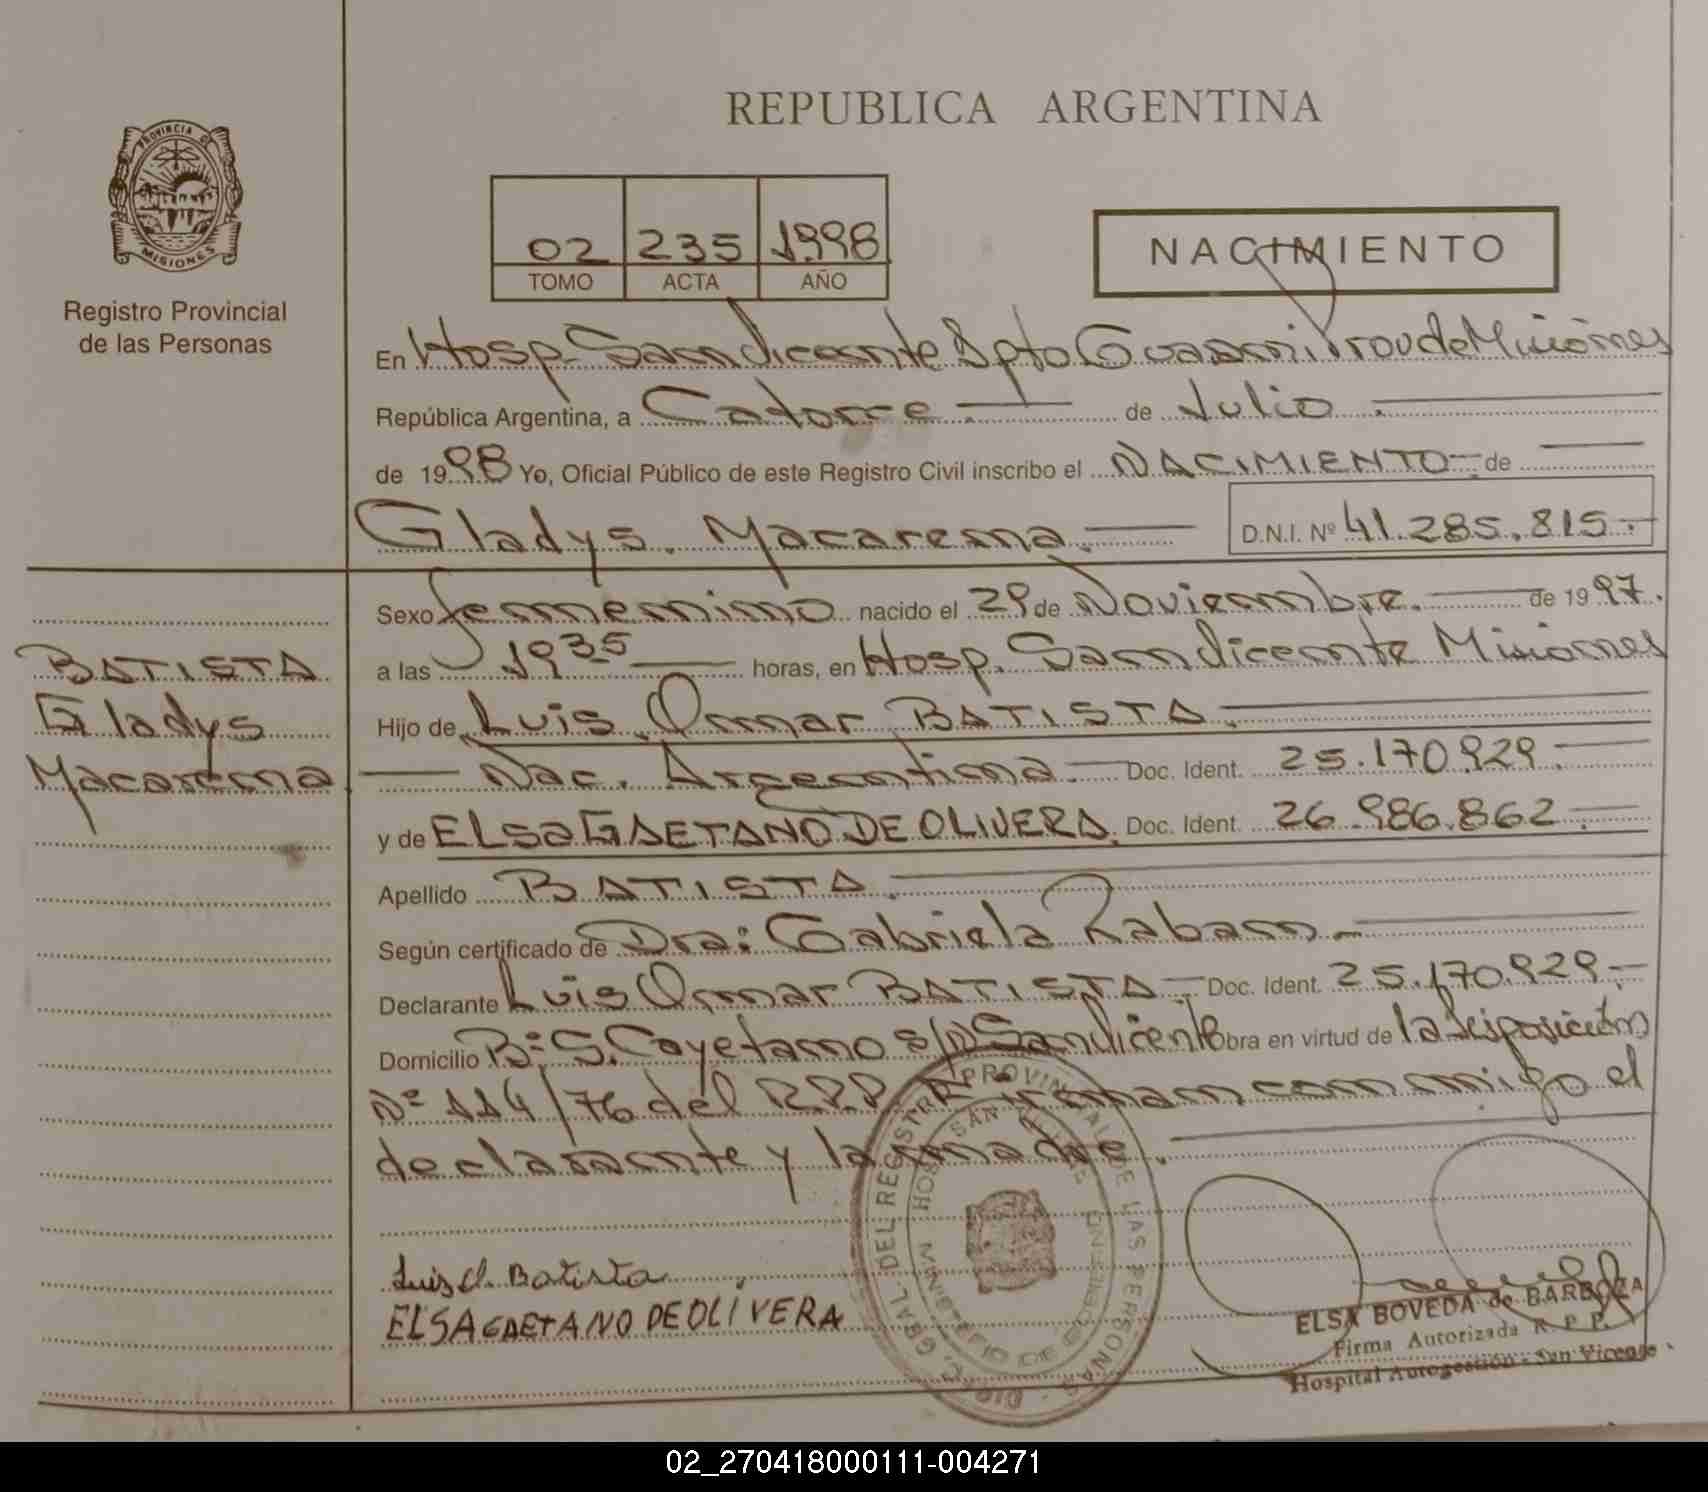 REPUBLICA ARGENTINA
PROVINCIA DE
MISIONES
Registro Provincial
de las Personas
02 235 1998
TOMO ACTA AÑO
NACIMIENTO
En Hosp. San Vicente Dpto Guaraní Prov de Misiones
República Argentina, a Catorce de Julio
de 1998 Yo, Oficial Público de este Registro Civil inscribo el NACIMIENTO de
Gladys Macarena. D.N.I. Nº 41.285.815.-
Sexo femenino nacido el 29 de Noviembre. de 1997.
a las 19 35 horas, en Hosp. San Vicente Misiones
Hijo de Luis Omar BATISTA.
Nac. Argentina Doc. Ident. 25.170.929.
y de ELSA GAETANO DE OLIVERA. Doc. Ident. 26.986.862.
Apellido BATISTA.
Según certificado de Dra: Gabriela Raban
Declarante Luis Omar BATISTA Doc. Ident. 25.170.929.-
Domicilio Bº S. Cayetano s/n San Vicente Obra en virtud de la disposición
Nº 114/76 del R.P.P. Firman conmigo el
declarante y la madre.
BATISTA
Gladys
Macarena
Luis O. Batista
ELSA GAETANO DE OLIVERA
DIR. GRAL DEL REGISTRO PROVINCIAL DE LAS PERSONAS
HOSP. SAN VICENTE
MINISTERIO DE GOBIERNO
ELSA BOVEDA de BARBOZA
Firma Autorizada R. P. P.
Hospital Autogestión - San Vicente
02_270418000111-004271